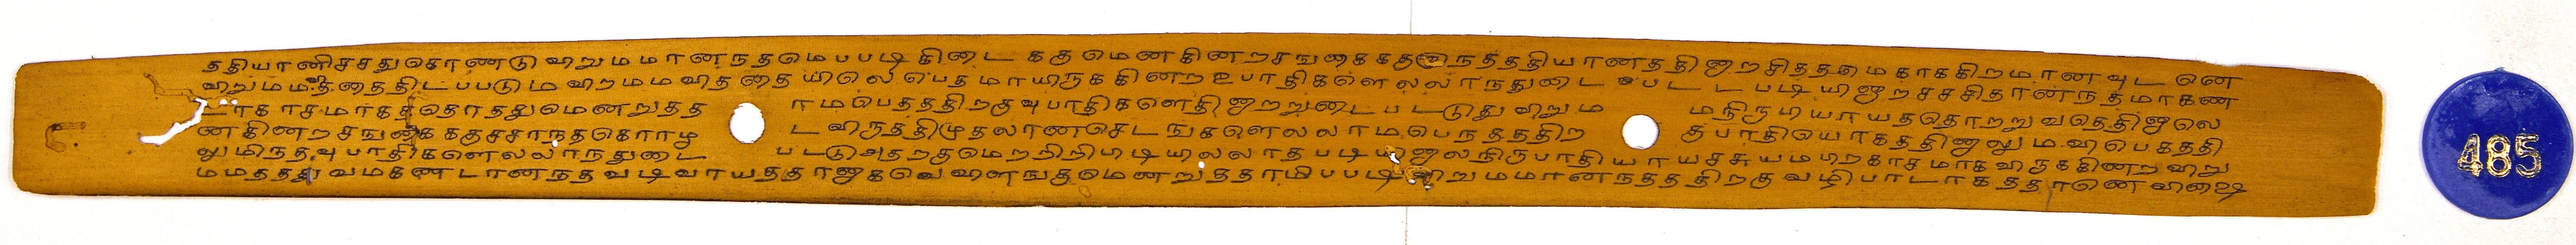 ததியானிச்சதுகொண்டு வறுமமானந்தமெப்படி கிடைக்கு மெனகினறசஙகைககுஇநத்ததியானத்தினுற சித்தகமகாககிறமானவுட னெ
வறுமமத்தைதிடப்படும வறமமவித்தையிலெ பெதமாயிருககின்ற உபாதிகளெல்லாநதுடை படடபடியினுற்சச்சிதானந்தமாகண
டாகாசமாகத்தொத்துமெனறுதத ாமபெதத்திறகுவுபாதிகளெதினுற்றுடைபடடுதுவறும மநிருபியாயததொற்றுவதெதினுலெ
ணகினறசஙகைககுச்சாநதகொாழ டவிருத்திமுதலானசெடஙகளெல்லாமபெநத்ததிற குபாதியொகத்தினுலுமவிபெகத்தி
லுமிந்தவுபாதிகளெல்லாநதுடை படடுஅதற்குமெறறிறிபிடியிலலாதபடியினுலநிருபாதியாயசசுயமபிறகாசமாகவிருககினறவறு
மமதத்துவமகண்டானநதவடிவாயத்தானகவெவிளஙகுமெனறுத்தாமிப்படிவறுமமானநதத்திறகுவழிபாடாகத்தானெவிஷை
485